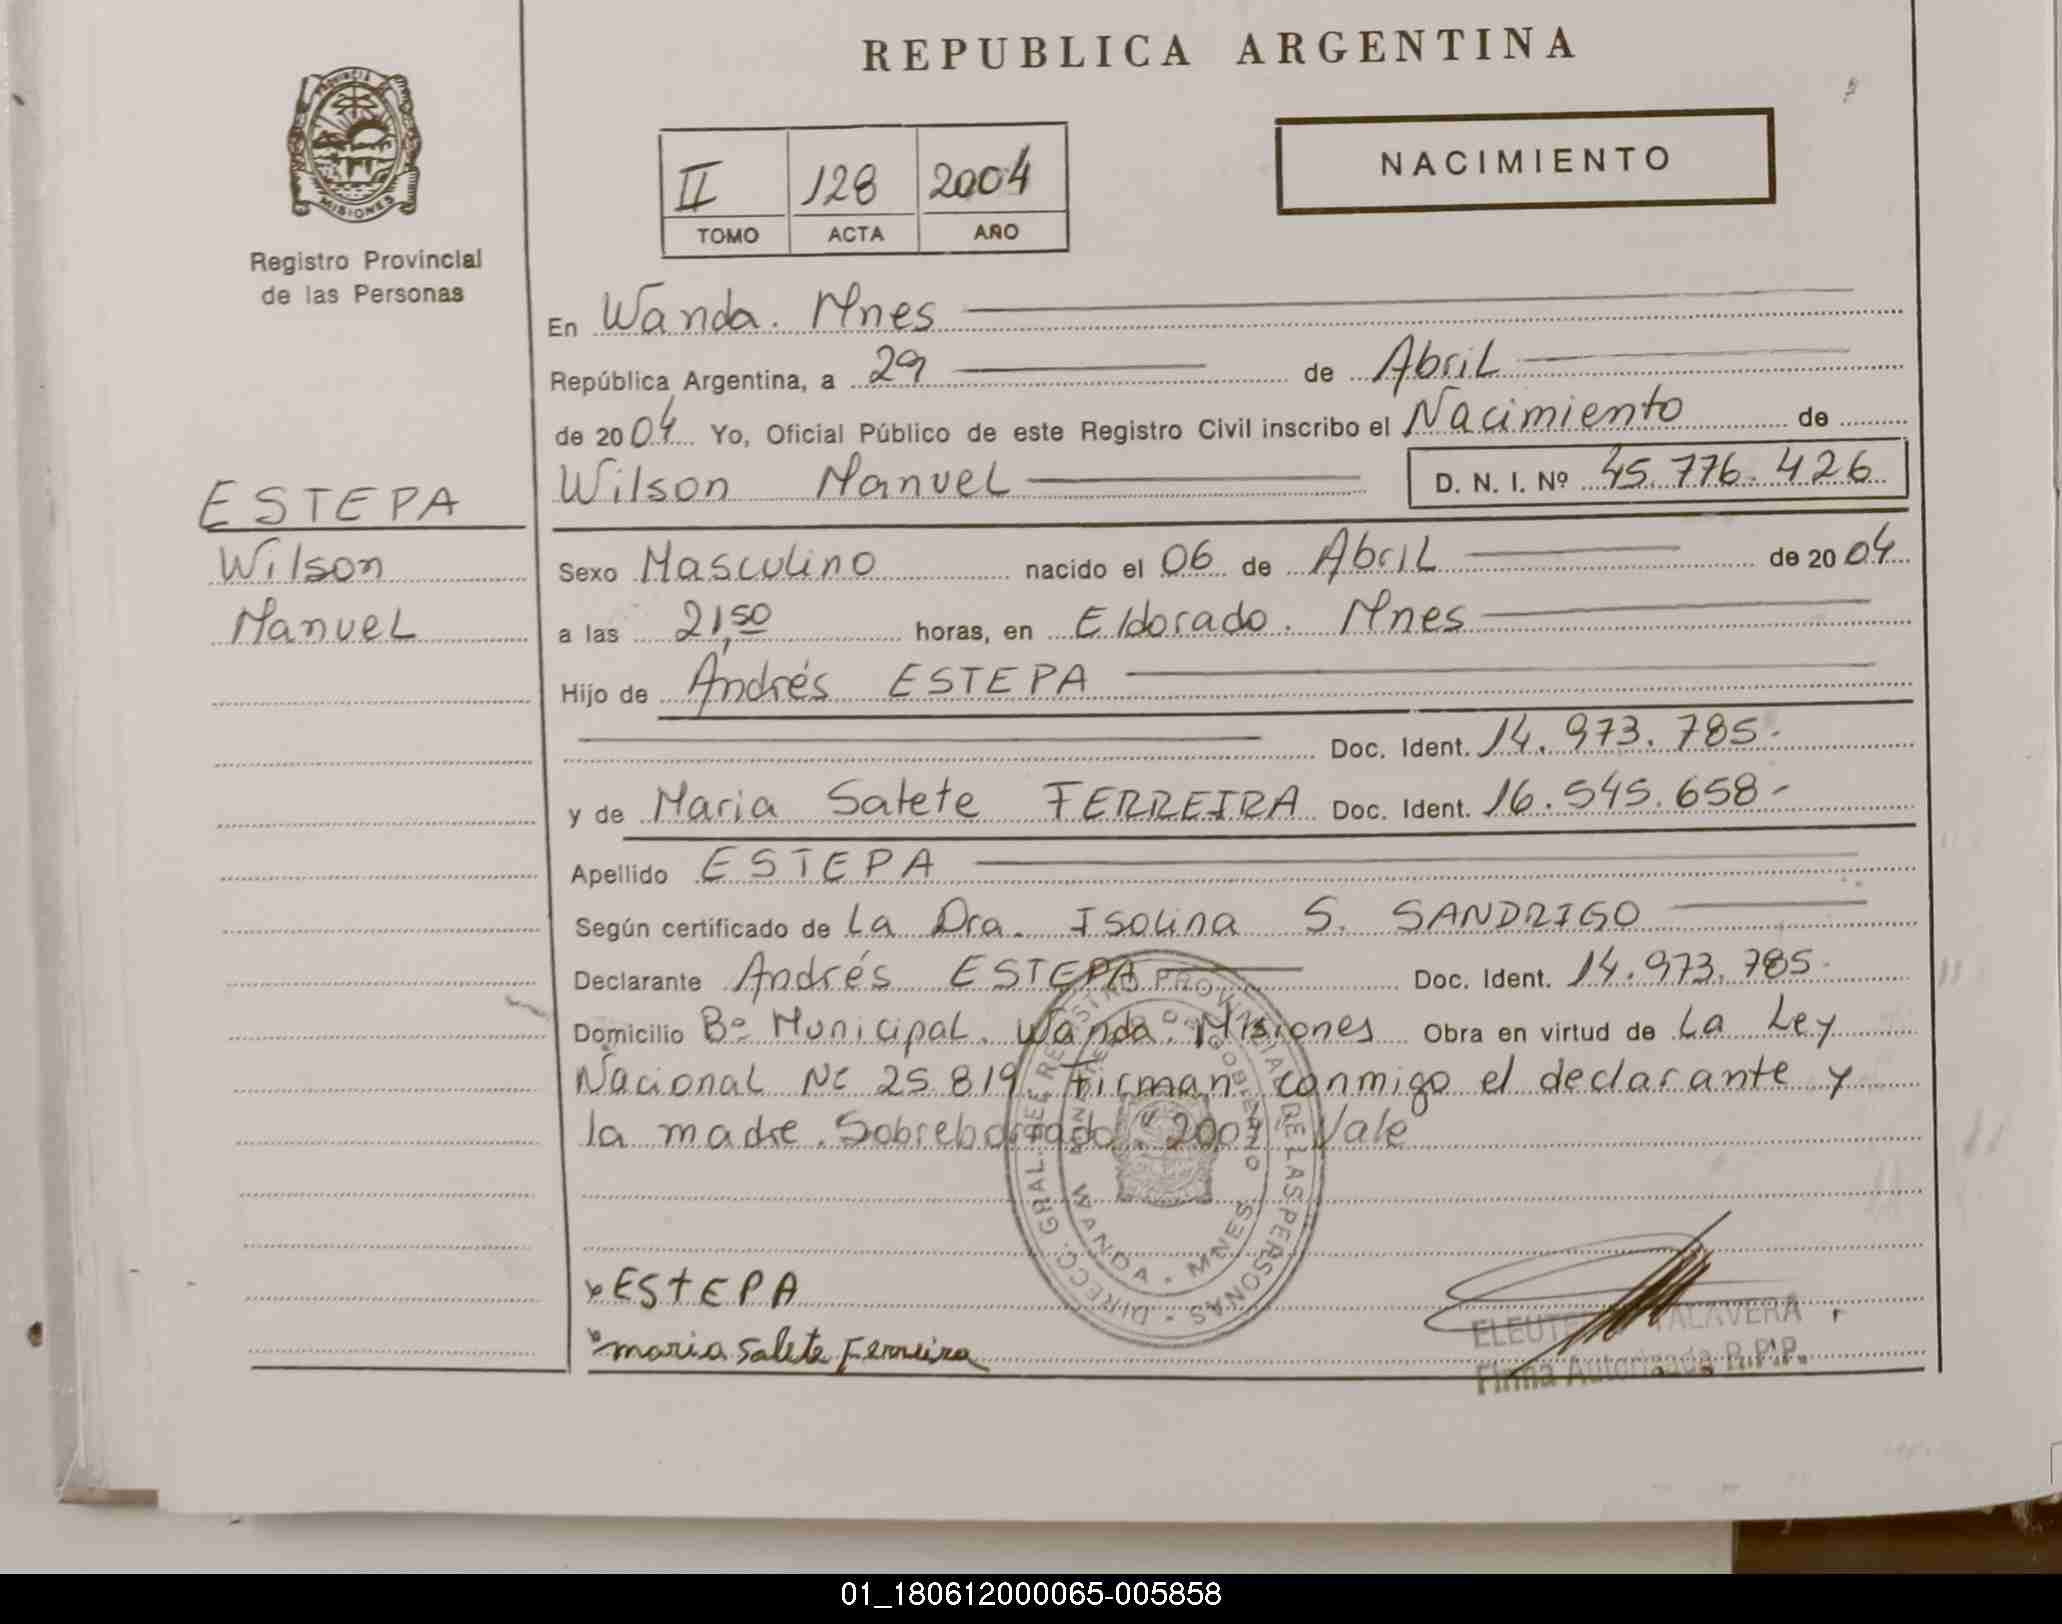 REPUBLICA ARGENTINA
PROVINCIA DE
MISIONES
Registro Provincial
de las Personas
II 128 2004
TOMO ACTA AÑO
NACIMIENTO
En Wanda. Mnes
República Argentina, a 29 de Abril
de 2004 Yo, Oficial Público de este Registro Civil inscribo el Nacimiento de
Wilson Manuel D. N. I. Nº 45.776.426
ESTEPA
Wilson
Manuel
Sexo Masculino nacido el 06 de Abril de 2004
a las 21,50 horas, en Eldorado. Mnes
Hijo de Andrés ESTEPA
Doc. Ident. 14.973.785-
y de Maria Salete FERREIRA Doc. Ident. 16.545.658-
Apellido ESTEPA
Según certificado de La Dra. Isolina S. SANDRIGO
Declarante Andrés ESTEPA Doc. Ident. 14.973.785-
Domicilio Bº Municipal. Wanda. Misiones Obra en virtud de La Ley
Nacional Nº 25.819 Firman conmigo el declarante y
la madre. Sobreborrado "2004" Vale
DIRECC. GRAL. DEL REGISTRO PROVINCIAL DE LAS PERSONAS
MINISTERIO DE GOBIERNO
WANDA - MNES.
ESTEPA
maria Salete Ferreira
TALAVERA
Firma Autorizada R.P.P.
01_180612000065-005858